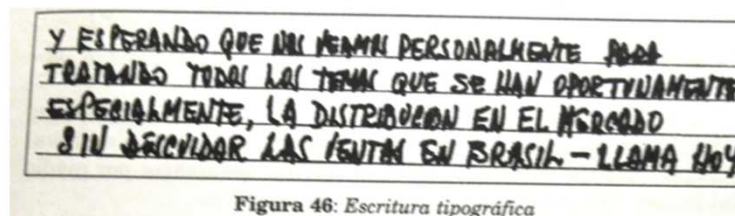 Y ESPERANDO QUE NOS VEAMOS PERSONALMENTE PARA
TRATANDO TODOS LOS TEMAS QUE SE HAN OPORTUNAMENTE
ESPECIALMENTE, LA DISTRIBUCION EN EL MERCADO
SIN DESCUIDAR LAS VENTAS EN BRASIL - LLAMA HOY
Figura 46: Escritura tipográfica